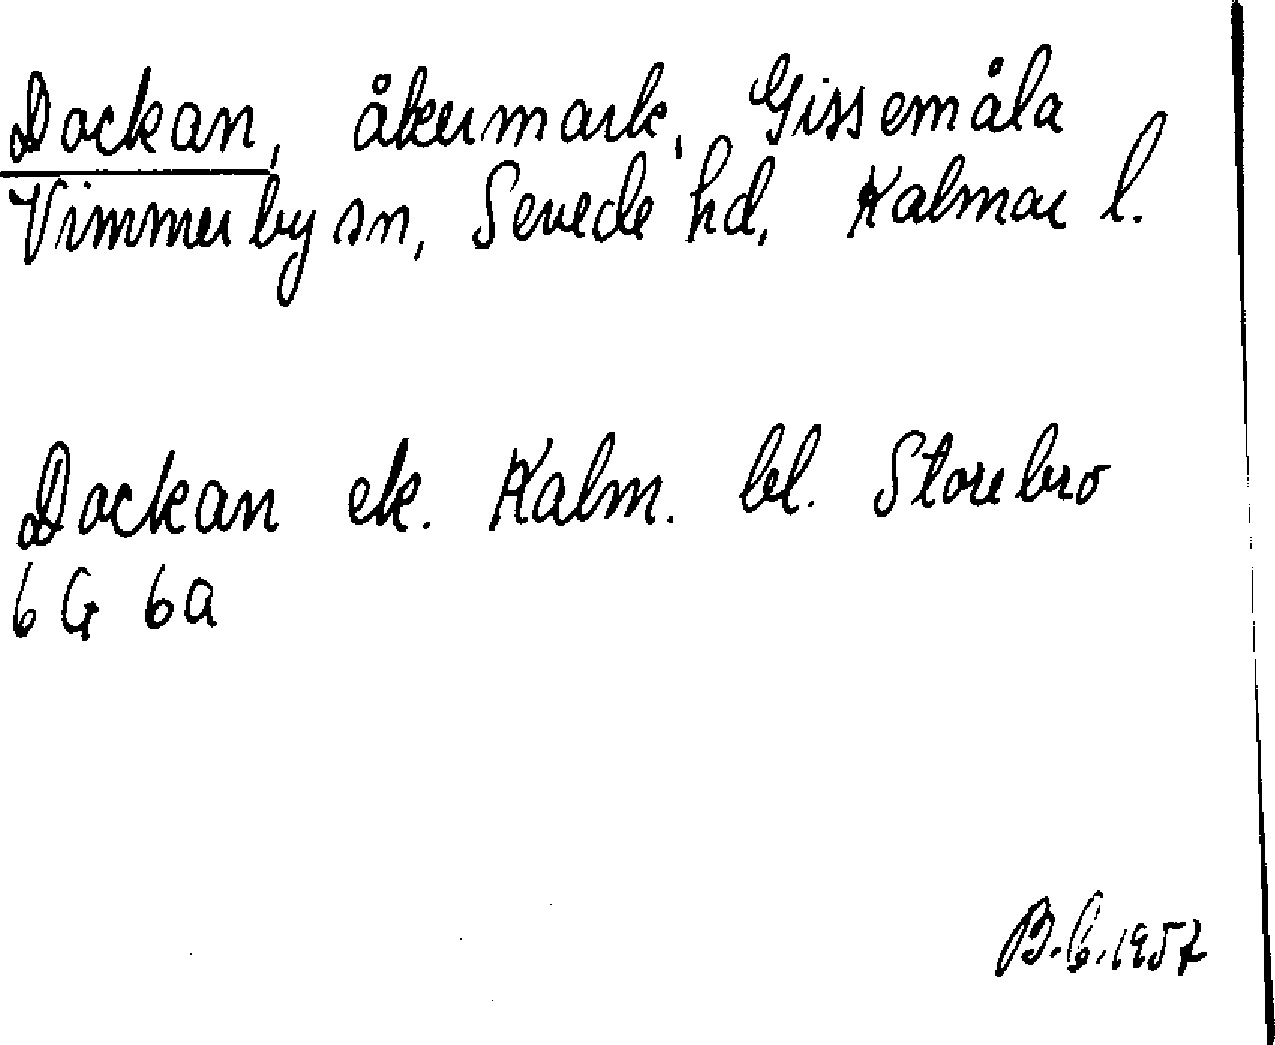 Dockan, åkermark, Gissemåla
Vimmerby sn, Sevede hd, Kalmar l.
Dockan ek. Kalm. bl. Storebro
6 G 6a
B.G.1957